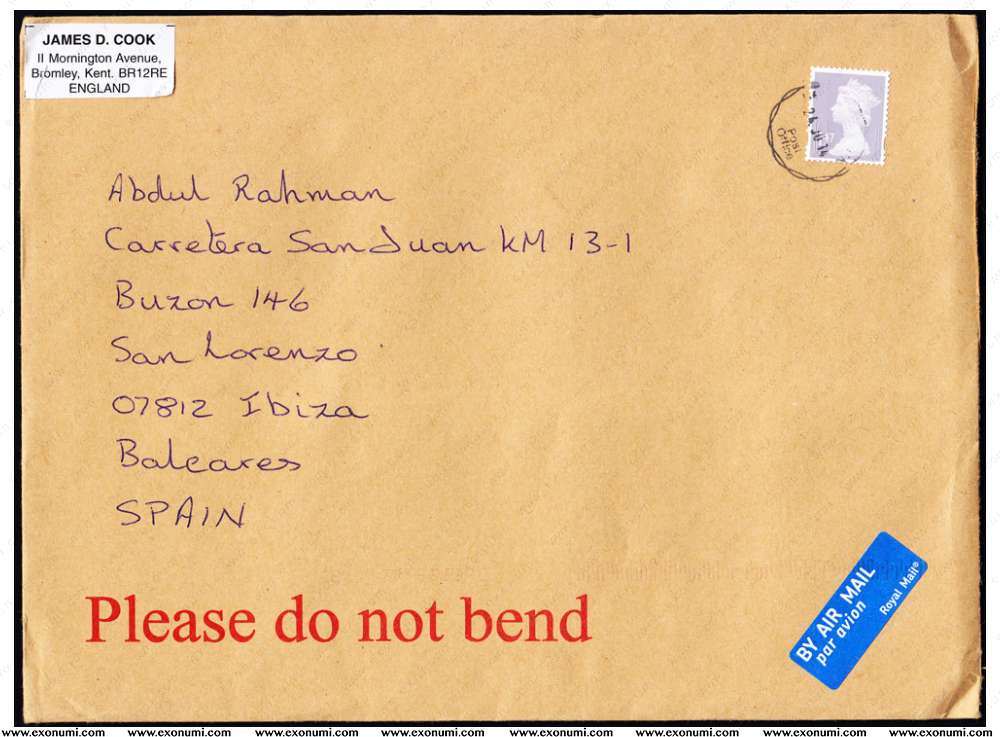 JAMES D. COOK
11 Mornington Avenue,
Bromley, Kent. BR12RE
ENGLAND
Post
Office
Abdul Rahman
Carretera San Juan KM 13-1
Buzon 146
San Lorenzo
07812 Ibiza
Baleares
SPAIN
Please do not bend
BY AIR MAIL
par avion
Royal Mail®
www.exonumi.com www.exonumi.com www.exonumi.com www.exonumi.com www.exonumi.com www.exonumi.com www.exonumi.com www.exonumi.com